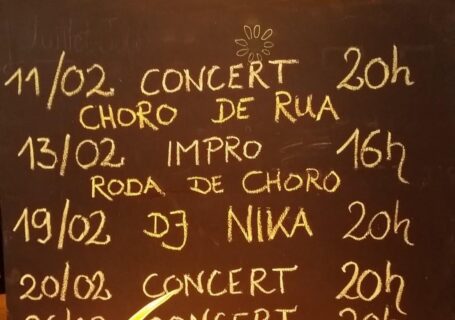 11/02 CONCERT 20h
CHORO DE RUA
13/02 IMPRO 16h
RODA DE CHORO
19/02 DJ NIKA 20h
20/02 CONCERT 20h
CONCERT 20h